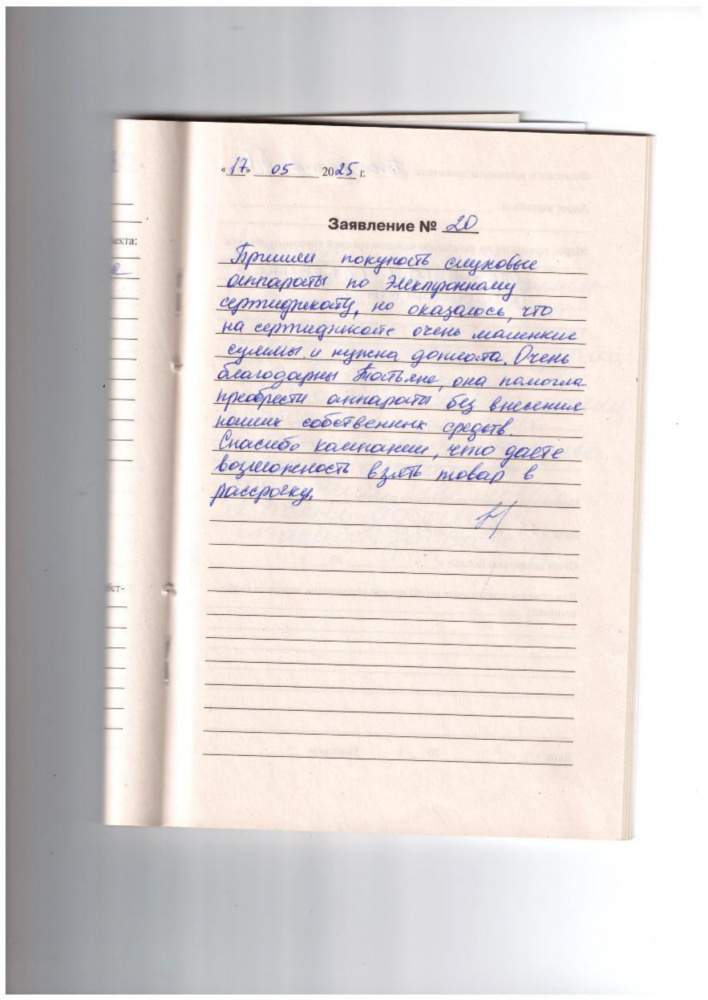 «17» 05 2025 г.
Заявление № 20
Пришли покупать слуховые
аппараты по Электронному
сертификату, но оказалось, что
на сертификате очень маленкие
суммы и нужна доплата. Очень
благодарны Татьяне, она помогла
преобрести аппараты без внесения
наших собственных средств.
Спасибо компании, что даете
возможность взять товар в
рассрочку.
екта:
йст-